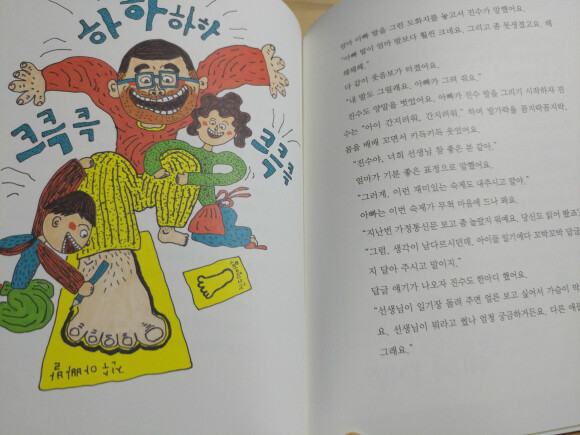 하하하하
크크크
크크크
엄마 아빠 발을 그린 도화지를 놓고서 진수가 말했어요.
"아빠 발이 엄마 발보다 훨씬 크네요. 그리고 좀 못생겼고요. 헤
헤헤헤."
다 같이 웃음보가 터졌어요.
"내 발도 그릴래요. 아빠가 그려 줘요."
진수도 양말을 벗었어요. 아빠가 진수 발을 그리기 시작하자 진
수는 "아이 간지러워, 간지러워." 하며 발가락을 꼼지락꼼지락,
몸을 배배 꼬면서 키득키득 웃었어요.
"진수야, 너희 선생님 참 좋은 분 같다."
엄마가 기분 좋은 표정으로 말했어요.
"그러게, 이런 재미있는 숙제도 내주시고 말야."
아빠는 이번 숙제가 무척 마음에 드나 봐요.
"지난번 가정통신문 보고 좀 놀랐지 뭐예요. 당신도 읽어 봤죠
"그럼. 생각이 남다르시던데. 아이들 일기에다 꼬박꼬박 답글
지 달아 주시고 말이지."
답글 얘기가 나오자 진수도 한마디 했어요.
"선생님이 일기장 돌려 주면 얼른 보고 싶어서 가슴이
요. 선생님이 뭐라고 썼나 엄청 궁금하거든요. 다른
그래요."